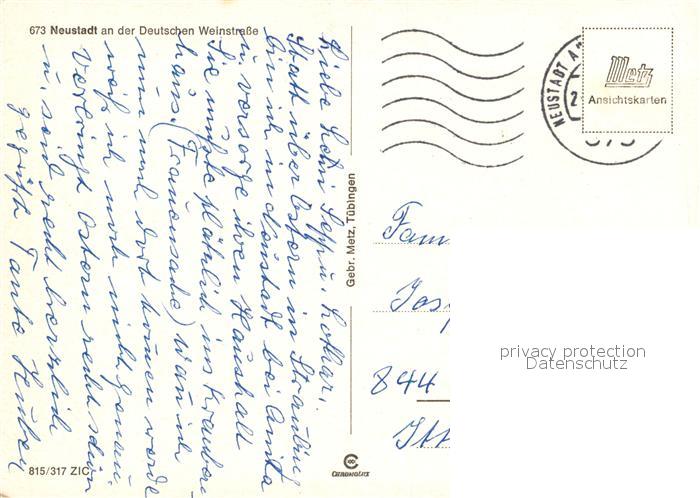 673 Neustadt an der Deutschen Weinstraße
Liebe Betti, Seppi, Lothar,
Statt über Ostern in Straubing
bin ich in Neustadt bei Anita
u. versorge ihren Haushalt
Sie mußte plötzlich ins Kranken-
haus. (Frauensache) Wann ich
nun und dort können werde
weiß ich noch nicht genau.
Verbringt Ostern recht schön
u. seid recht herzlich
gegrüßt Tante
815/317 ZIC
Gebr. Metz, Tübingen
CHROMOLUX
NEUSTADT A
2
673
Metz
Ansichtskarten
Fam
Jos
844
Itt
privacy protection
Datenschutz